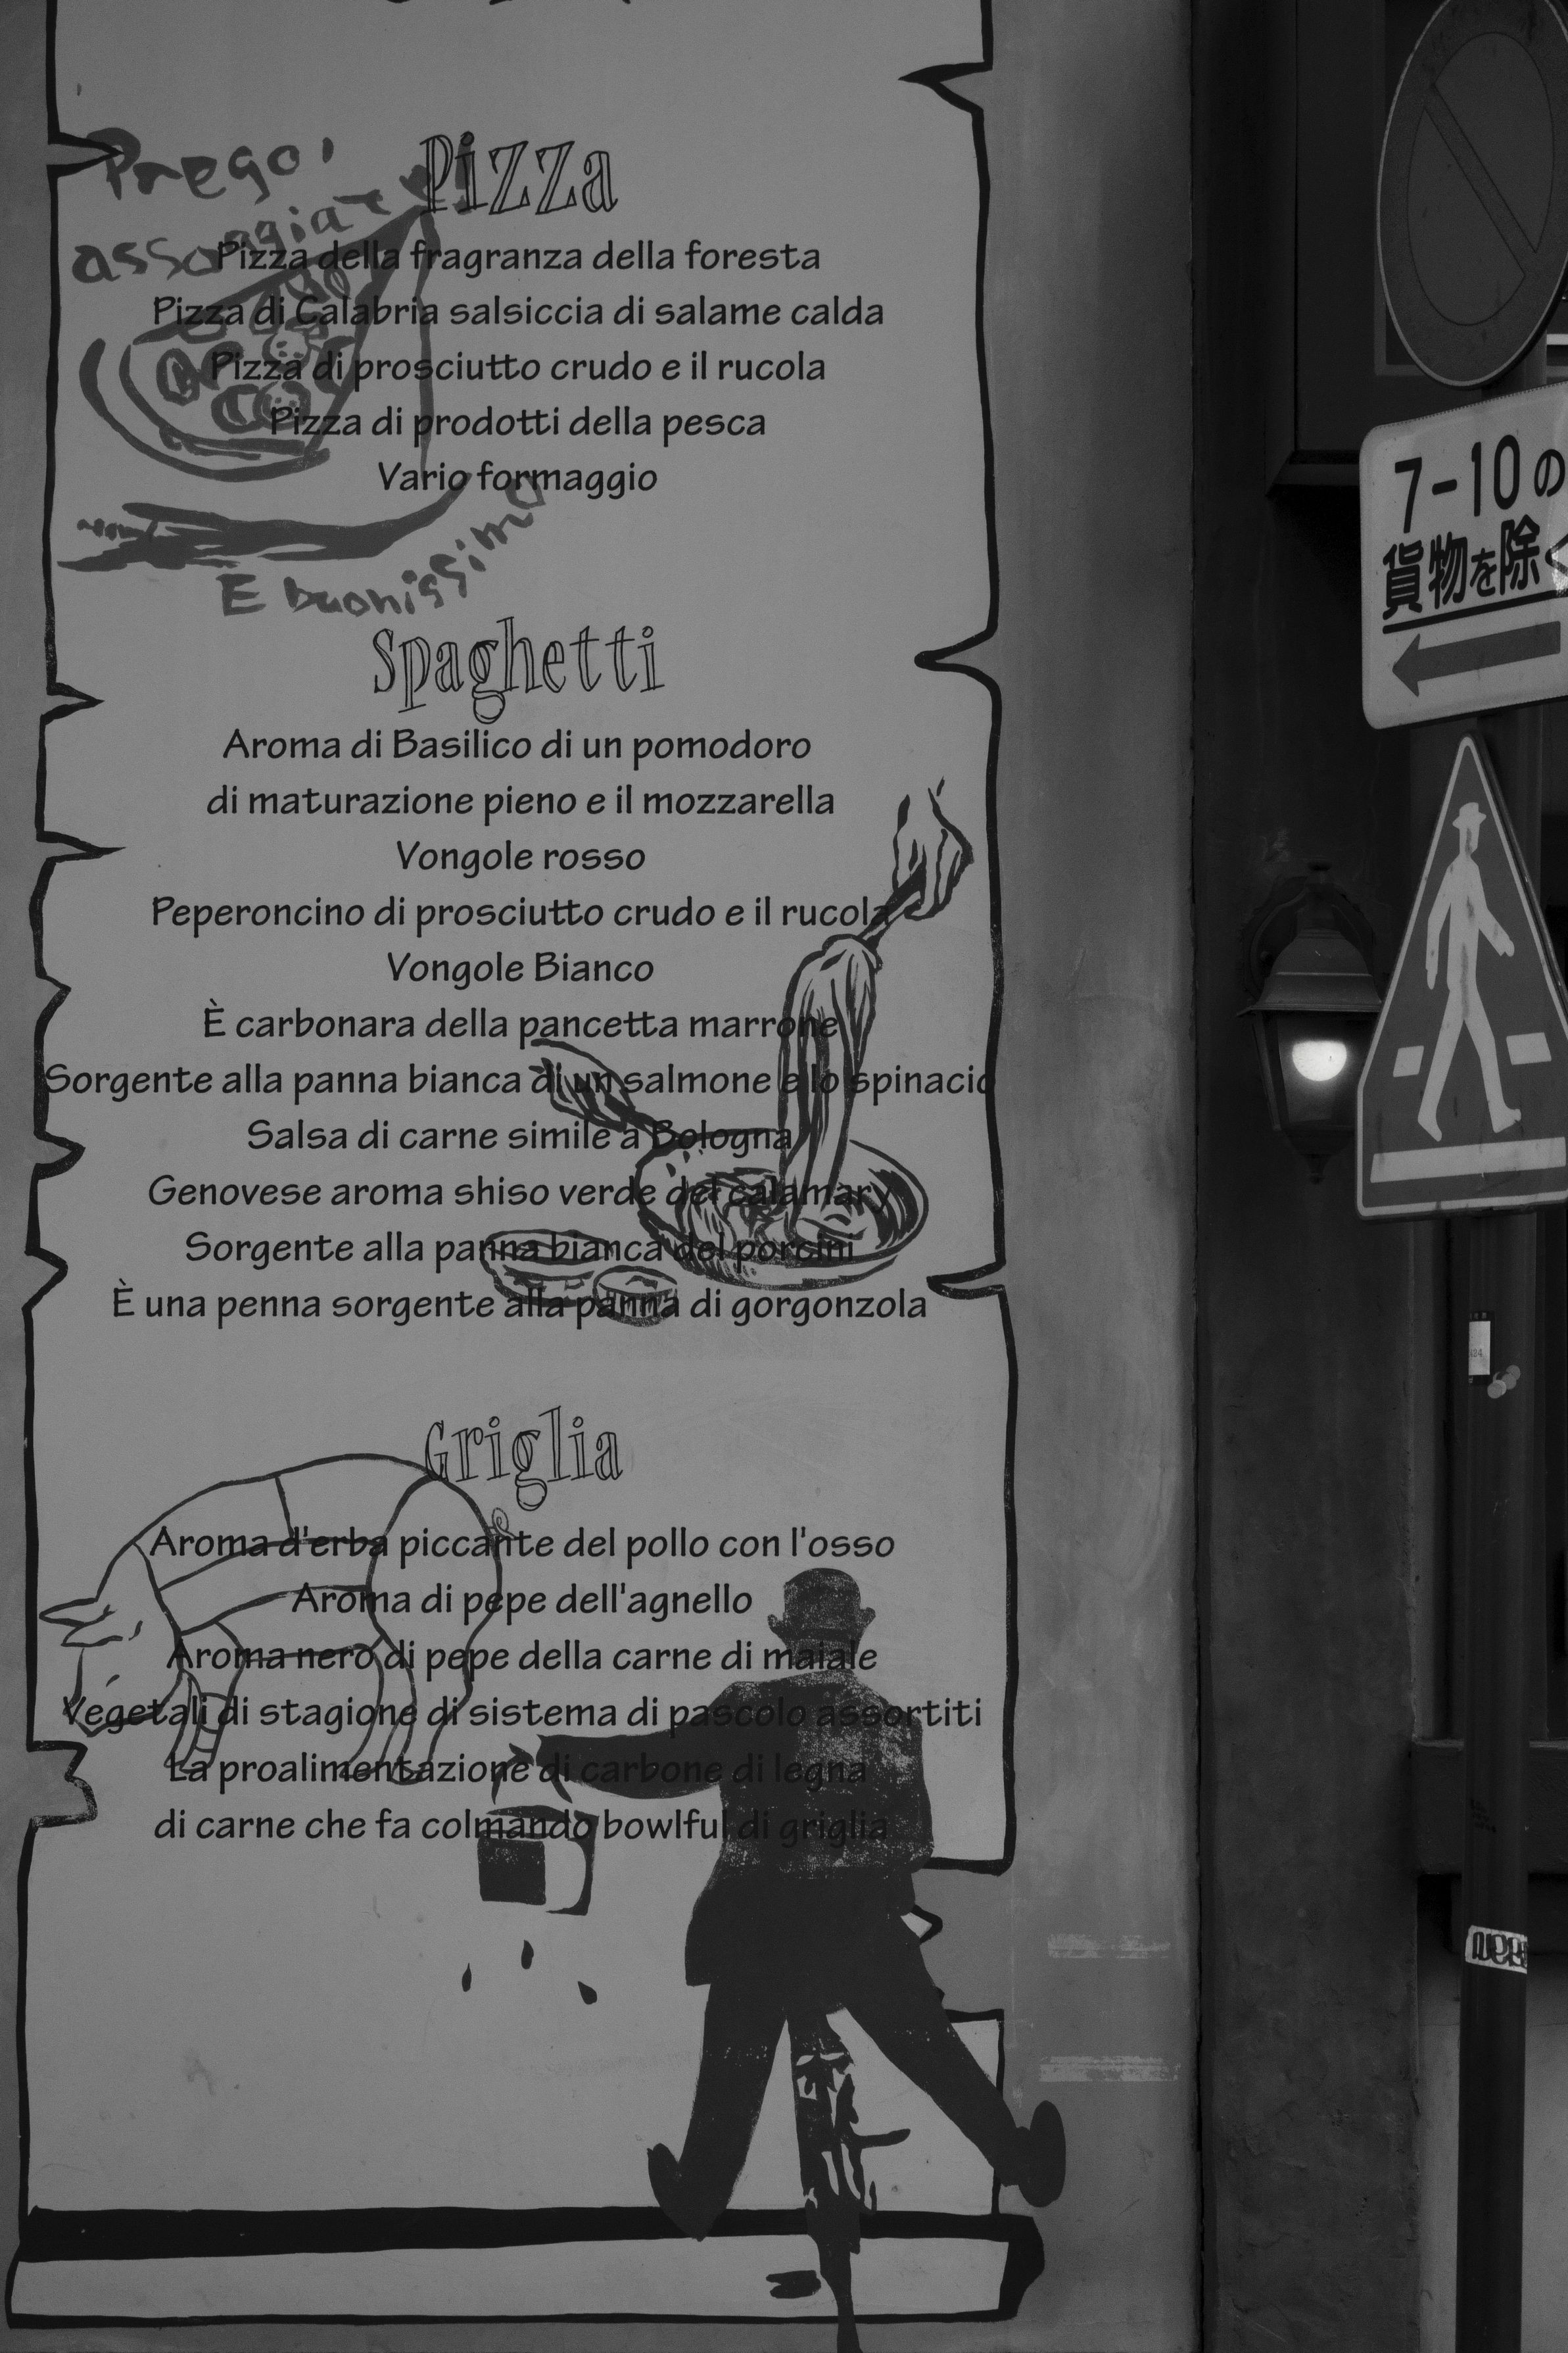 Prego,
assaggiate
Pizza
Pizza della fragranza della foresta
Pizza di Calabria salsiccia di salame calda
Pizza di prosciutto crudo e il rucola
Pizza di prodotti della pesca
Vario formaggio
E buonissimo
Spaghetti
Aroma di Basilico di un pomodoro
di maturazione pieno e il mozzarella
Vongole rosso
Peperoncino di prosciutto crudo e il rucola
Vongole Bianco
È carbonara della pancetta marrone
Sorgente alla panna bianca di un salmone e lo spinacio
Salsa di carne simile a Bologna
Genovese aroma shiso verde del calamary
Sorgente alla panna bianca del porcini
È una penna sorgente alla panna di gorgonzola
Griglia
Aroma d'erba piccante del pollo con l'osso
Aroma di pepe dell'agnello
Aroma nero di pepe della carne di maiale
Vegetali di stagione di sistema di pascolo assortiti
La proalimentazione di carbone di legna
di carne che fa colmando bowlful di griglia
7-10の
貨物を除く